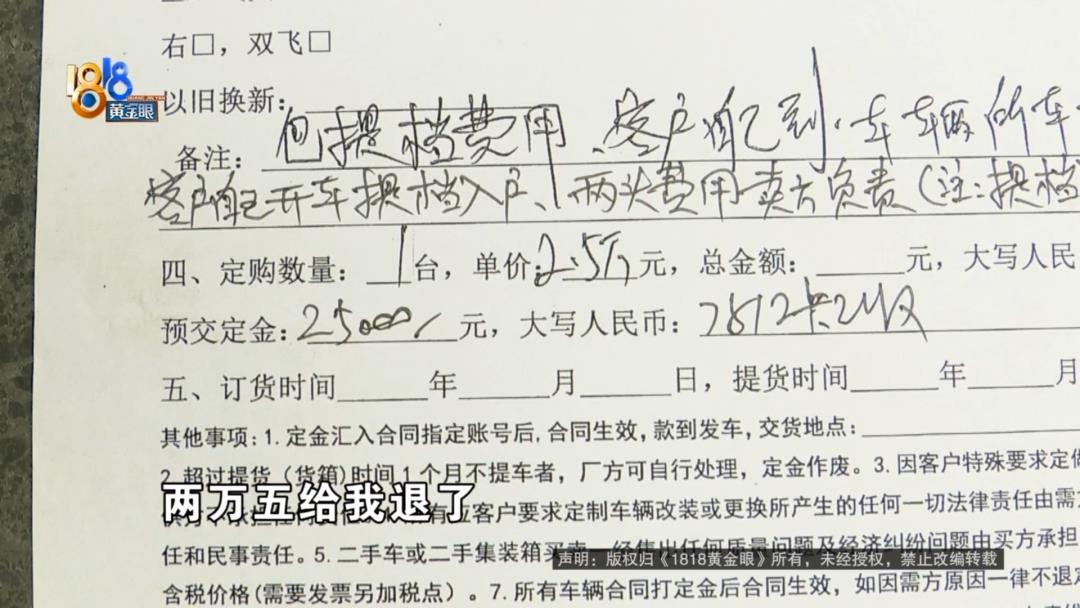 右□，双飞□
1818
黄金眼
以旧换新：
备注：包提档费用、客户自己到·车辆所车
客户自己开车提档入户、两头费用卖方负责（注：提档
四、定购数量：1台，单价：2.5万元，总金额：元，大写人民
预交定金：25000元，大写人民币：7812卡已收
五、订货时间 年 月 日，提货时间 年 月
其他事项：1.定金汇入合同指定账号后，合同生效，款到发车，交货地点：
2.超过提货（货箱）时间1个月不提车者，厂方可自行处理，定金作废。3.因客户特殊要求定做
两万五给我退了
应客户要求定制车辆改装或更换所产生的任何一切法律责任由需
任和民事责任。5.二手车或二手集装箱买卖一经售出任何质量问题及经济纠纷问题由买方承担
声明：版权归《1818黄金眼》所有，未经授权，禁止改编转载
含税价格(需要发票另加税点）。7.所有车辆合同打定金后合同生效，如因需方原因一律不退定